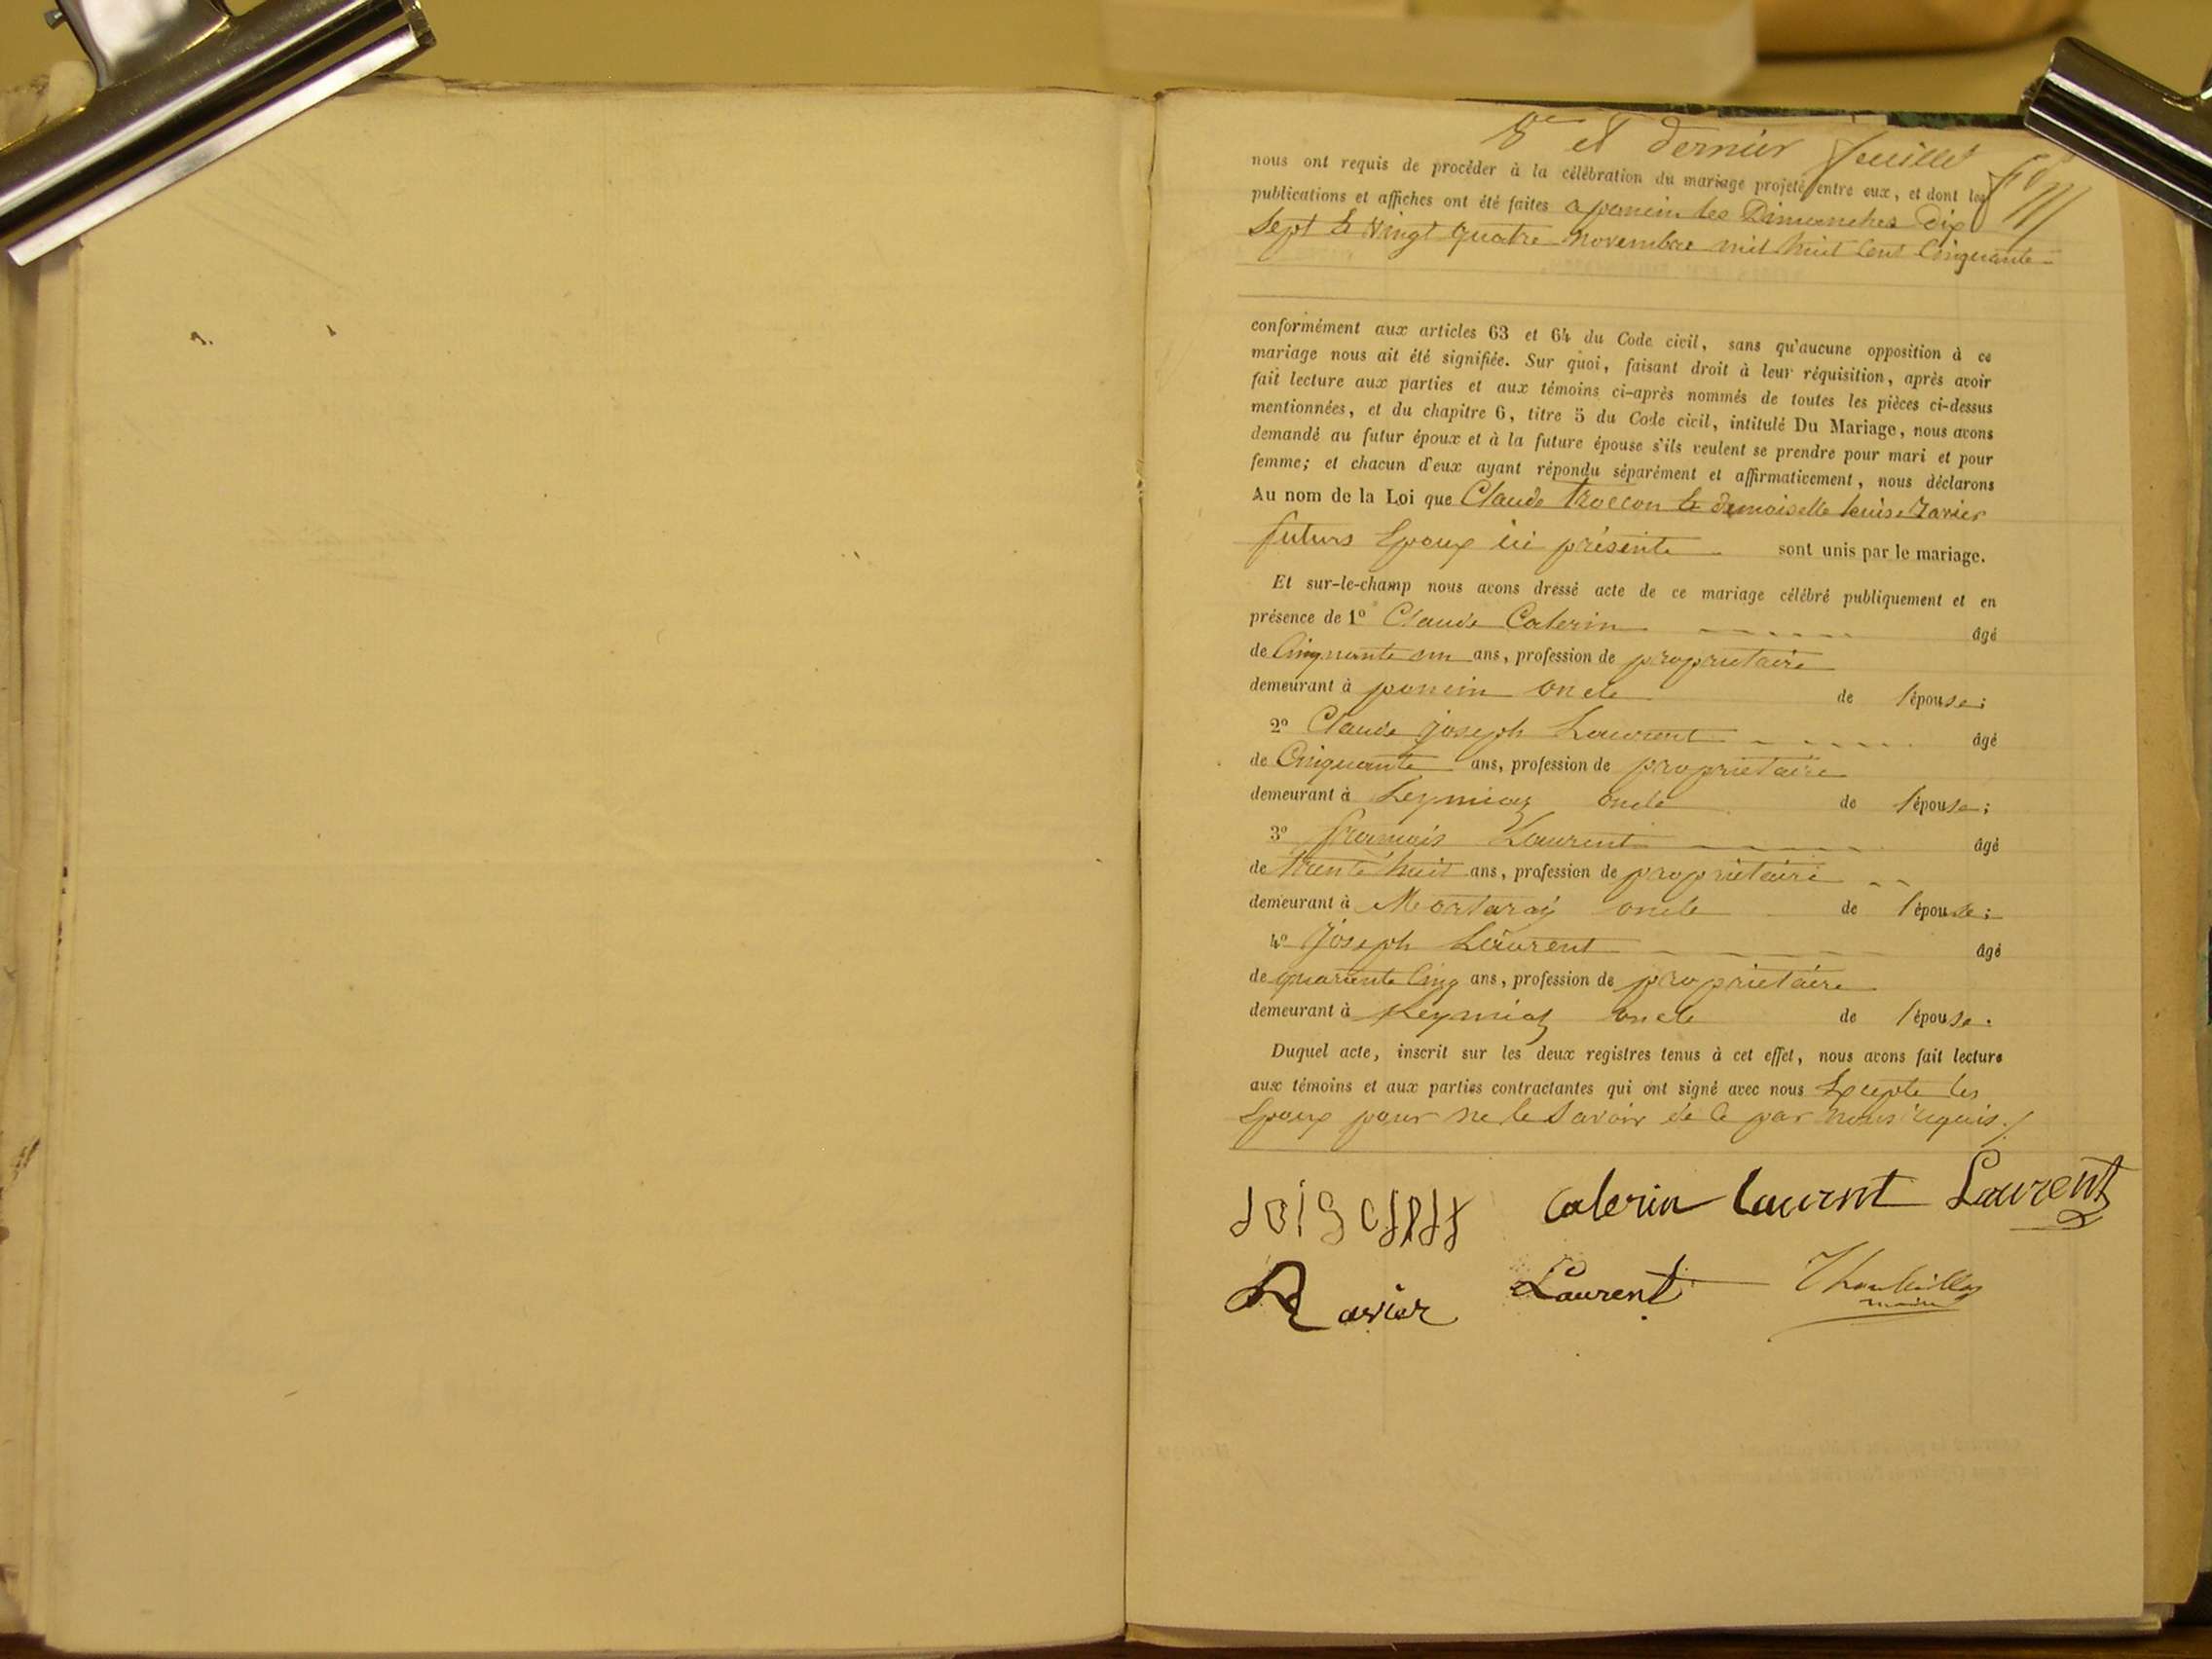 8e et dernier feuillet
nous ont requis de procéder à la célébration du mariage projeté entre eux, et dont les
publications et affiches ont été faites a poncin les Dimanches Dix
Sept et Vingt quatre novembre mil huit Cent Cinquante
conformément aux articles 63 et 64 du Code civil, sans qu'aucune opposition à ce
mariage nous ait été signifiée. Sur quoi, faisant droit à leur réquisition, après avoir
fait lecture aux parties et aux témoins ci-après nommés de toutes les pièces ci-dessus
mentionnées, et du chapitre 6, titre 5 du Code civil, intitulé Du Mariage, nous avons
demandé au futur époux et à la future épouse s'ils veulent se prendre pour mari et pour
femme; et chacun d'eux ayant répondu séparément et affirmativement, nous déclarons
Au nom de la Loi que Claude troccon et demoiselle louise Ravier
futurs Epoux ici présents sont unis par le mariage.
Et sur-le-champ nous avons dressé acte de ce mariage célébré publiquement et en
présence de 1º Claude Caterin âgé
de Cinquante un ans, profession de propriétaire
demeurant à poncin oncle de l'épouse;
2º Claude joseph Laurent âgé
de Cinquante ans, profession de propriétaire
demeurant à Leymiaz oncle de l'épouse;
3º francois Laurent âgé
de trente huit ans, profession de propriétaire
demeurant à Mortaray oncle de l'épouse;
4º joseph Laurent âgé
de quarante Cinq ans, profession de propriétaire
demeurant à Leymiaz oncle de l'épouse.
Duquel acte, inscrit sur les deux registres tenus à cet effet, nous avons fait lecture
aux témoins et aux parties contractantes qui ont signé avec nous Excepté les
Epoux pour ne le Savoir de ce par nous requis./
Caterin Laurent Laurent
Ravier Laurent
maire